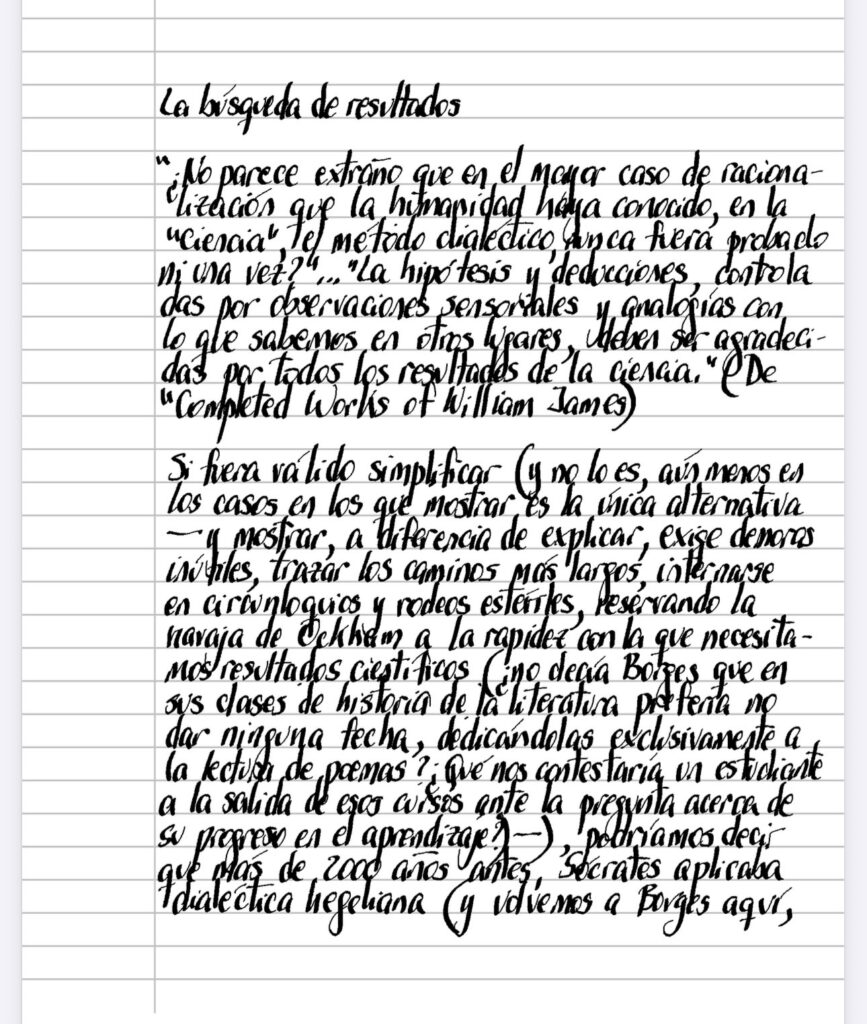 La búsqueda de resultados
"¿No parece extraño que en el mayor caso de raciona-
lización que la humanidad haya conocido, en la
"ciencia", el método dialéctico nunca fuera probado
ni una vez?"..."La hipótesis y deducciones, controla
das por observaciones sensoriales y analogías con
lo que sabemos en otros lugares, deben ser agradeci-
das por todos los resultados de la ciencia." (De
"Completed Works of William James)
Si fuera válido simplificar (y no lo es, aún menos en
los casos en los que mostrar es la única alternativa
—y mostrar, a diferencia de explicar, exige demoras
inútiles, trazar los caminos más largos, internarse
en circunloquios y rodeos estériles, reservando la
navaja de Ockham a la rapidez con la que necesita-
mos resultados científicos (¿no decía Borges que en
sus clases de historia de la literatura prefería no
dar ninguna fecha, dedicándolas exclusivamente a
la lectura de poemas? ¿Qué nos contestaría un estudiante
a la salida de esos cursos ante la pregunta acerca de
su progreso en el aprendizaje?)—), podríamos decir
que más de 2000 años antes, Sócrates aplicaba
dialéctica hegeliana (y volvemos a Borges aquí,